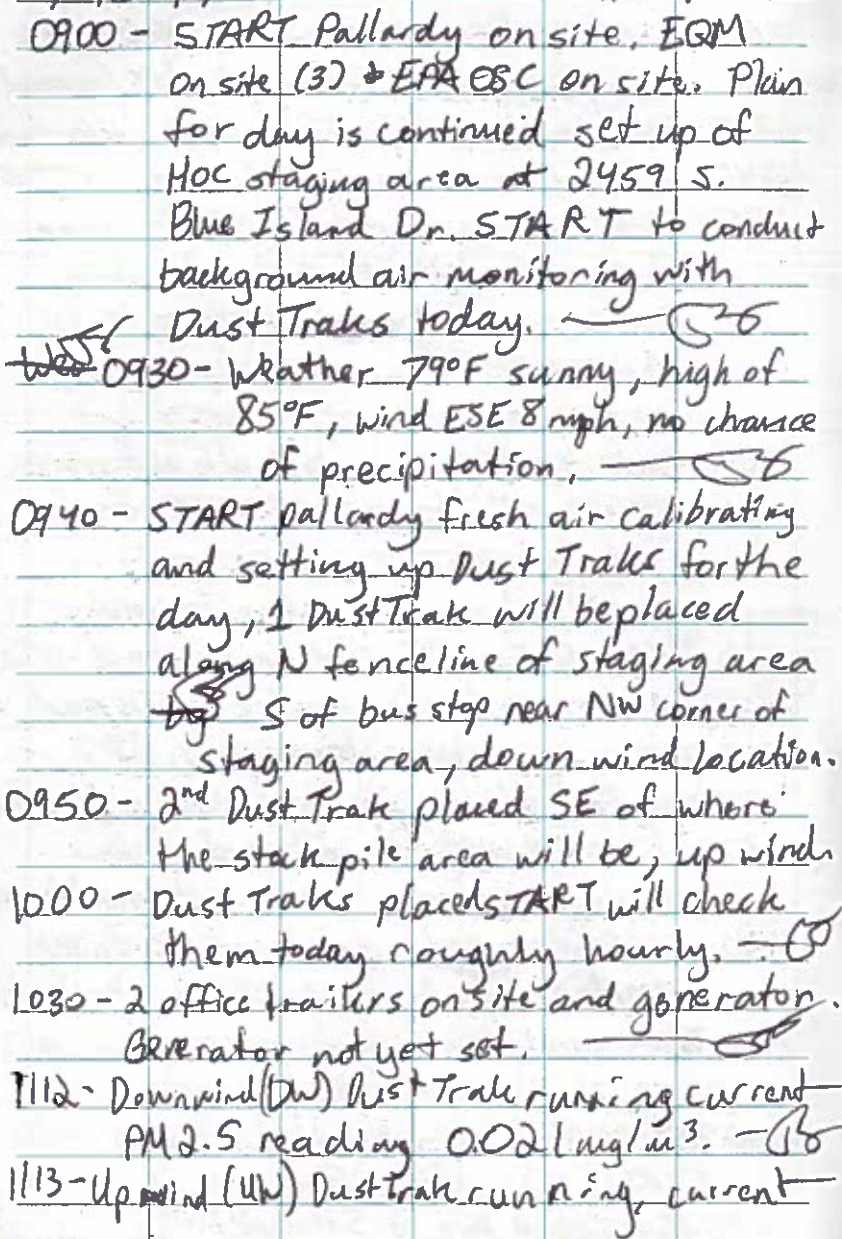 0900 - START Pallardy on site. EQM
on site (3) & EPA OSC on site. Plan
for day is continued set up of
HOC staging area at 2459 S.
Blue Island Dr. START to conduct
background air monitoring with
Dust Traks today.
0930 - Weather 79°F sunny, high of
85°F, wind ESE 8 mph, no chance
of precipitation.
0940 - START pallardy fresh air calibrating
and setting up Dust Traks for the
day, 1 DustTrak will be placed
along N fenceline of staging area
S of bus stop near NW corner of
staging area, down wind location.
0950 - 2nd Dust Trak placed SE of where
the stock pile area will be, up wind
1000 - Dust Traks placed START will check
them today roughly hourly.
1030 - 2 office trailers on site and generator.
Generator not yet set.
1112 - Downwind (DW) Dust Trak running current
PM 2.5 reading 0.021 mg/m³.
1113 - Upwind (UW) DustTrak running, current